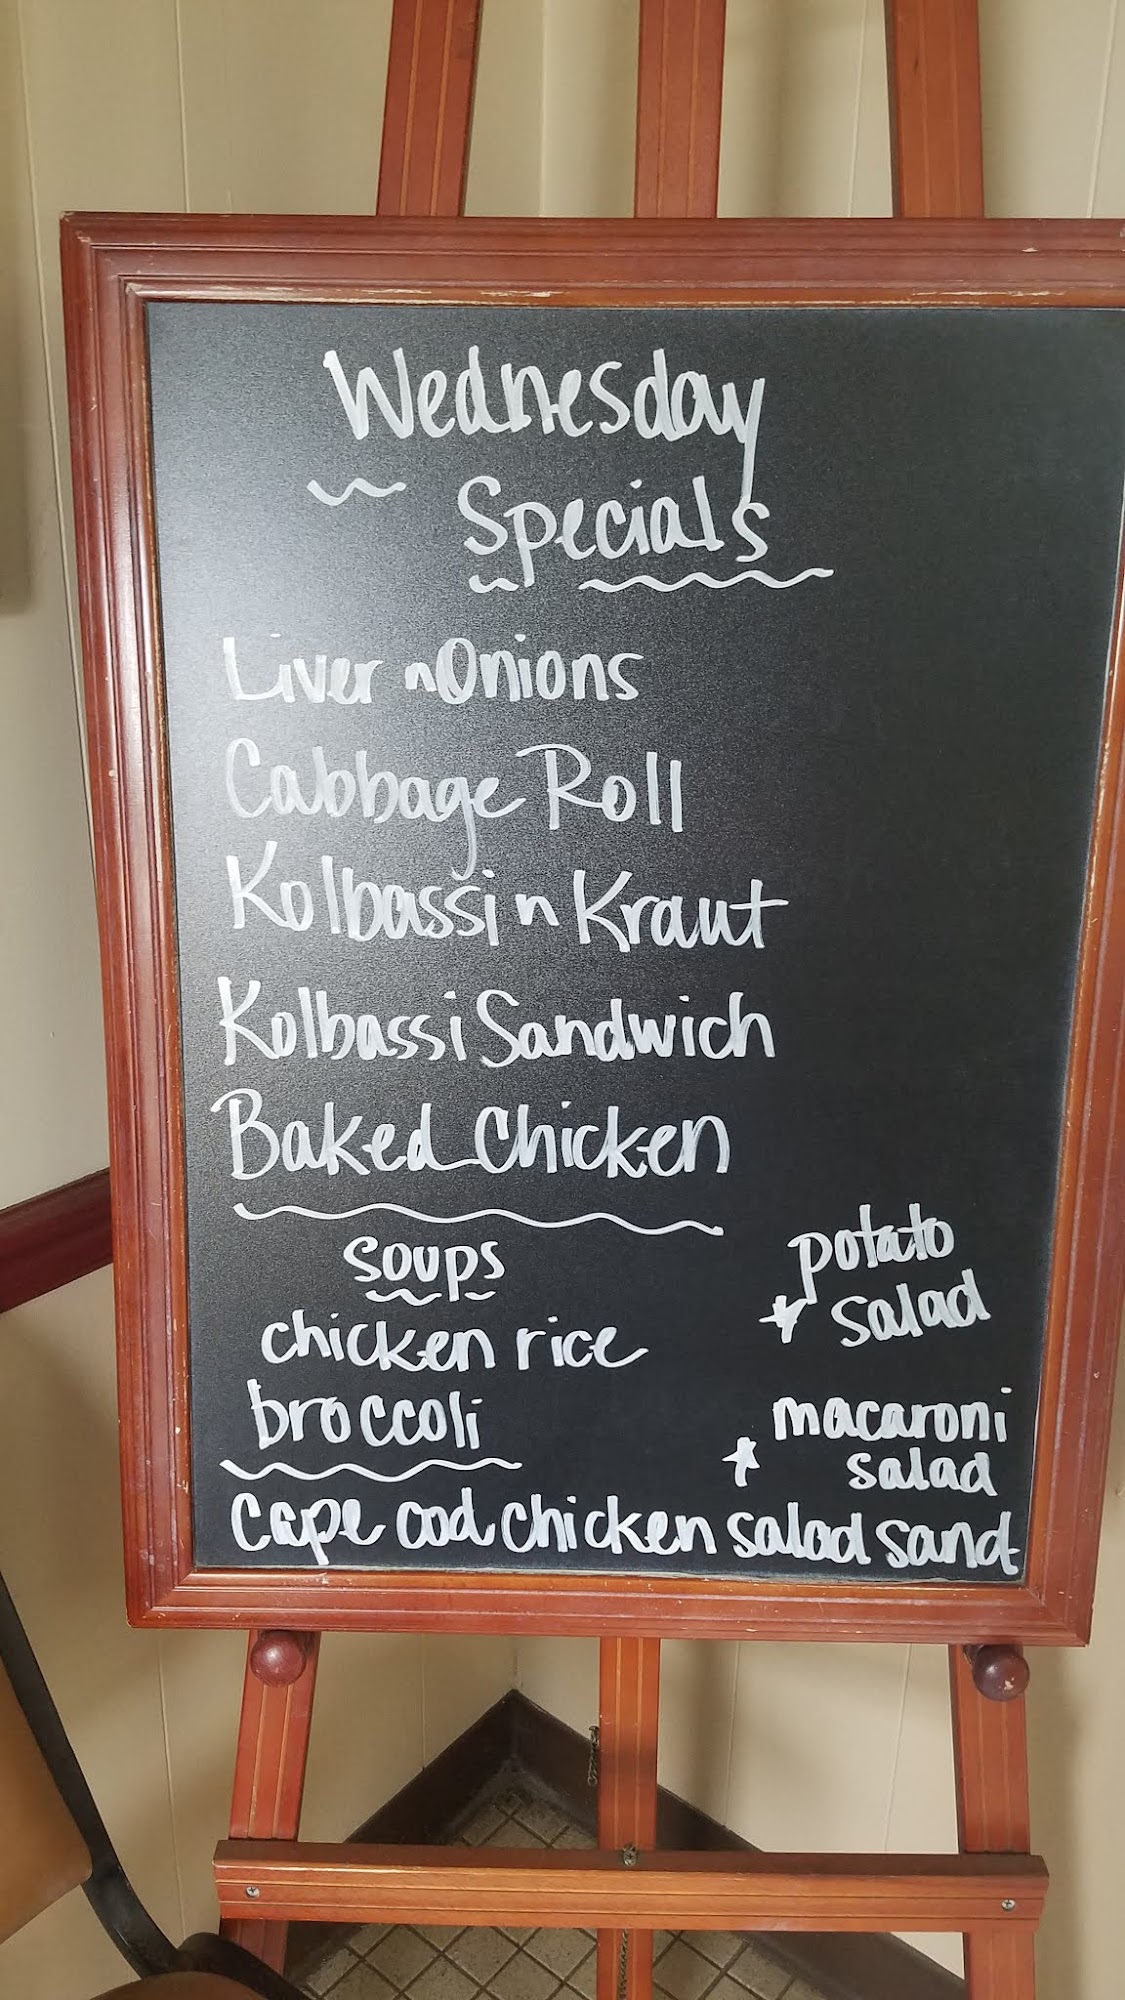 Wednesday
Specials
Liver n Onions
Cabbage Roll
Kolbassi n Kraut
Kolbassi Sandwich
Baked Chicken
soups
chicken rice
broccoli
potato
salad
macaroni
salad
Cape cod chicken salad sand